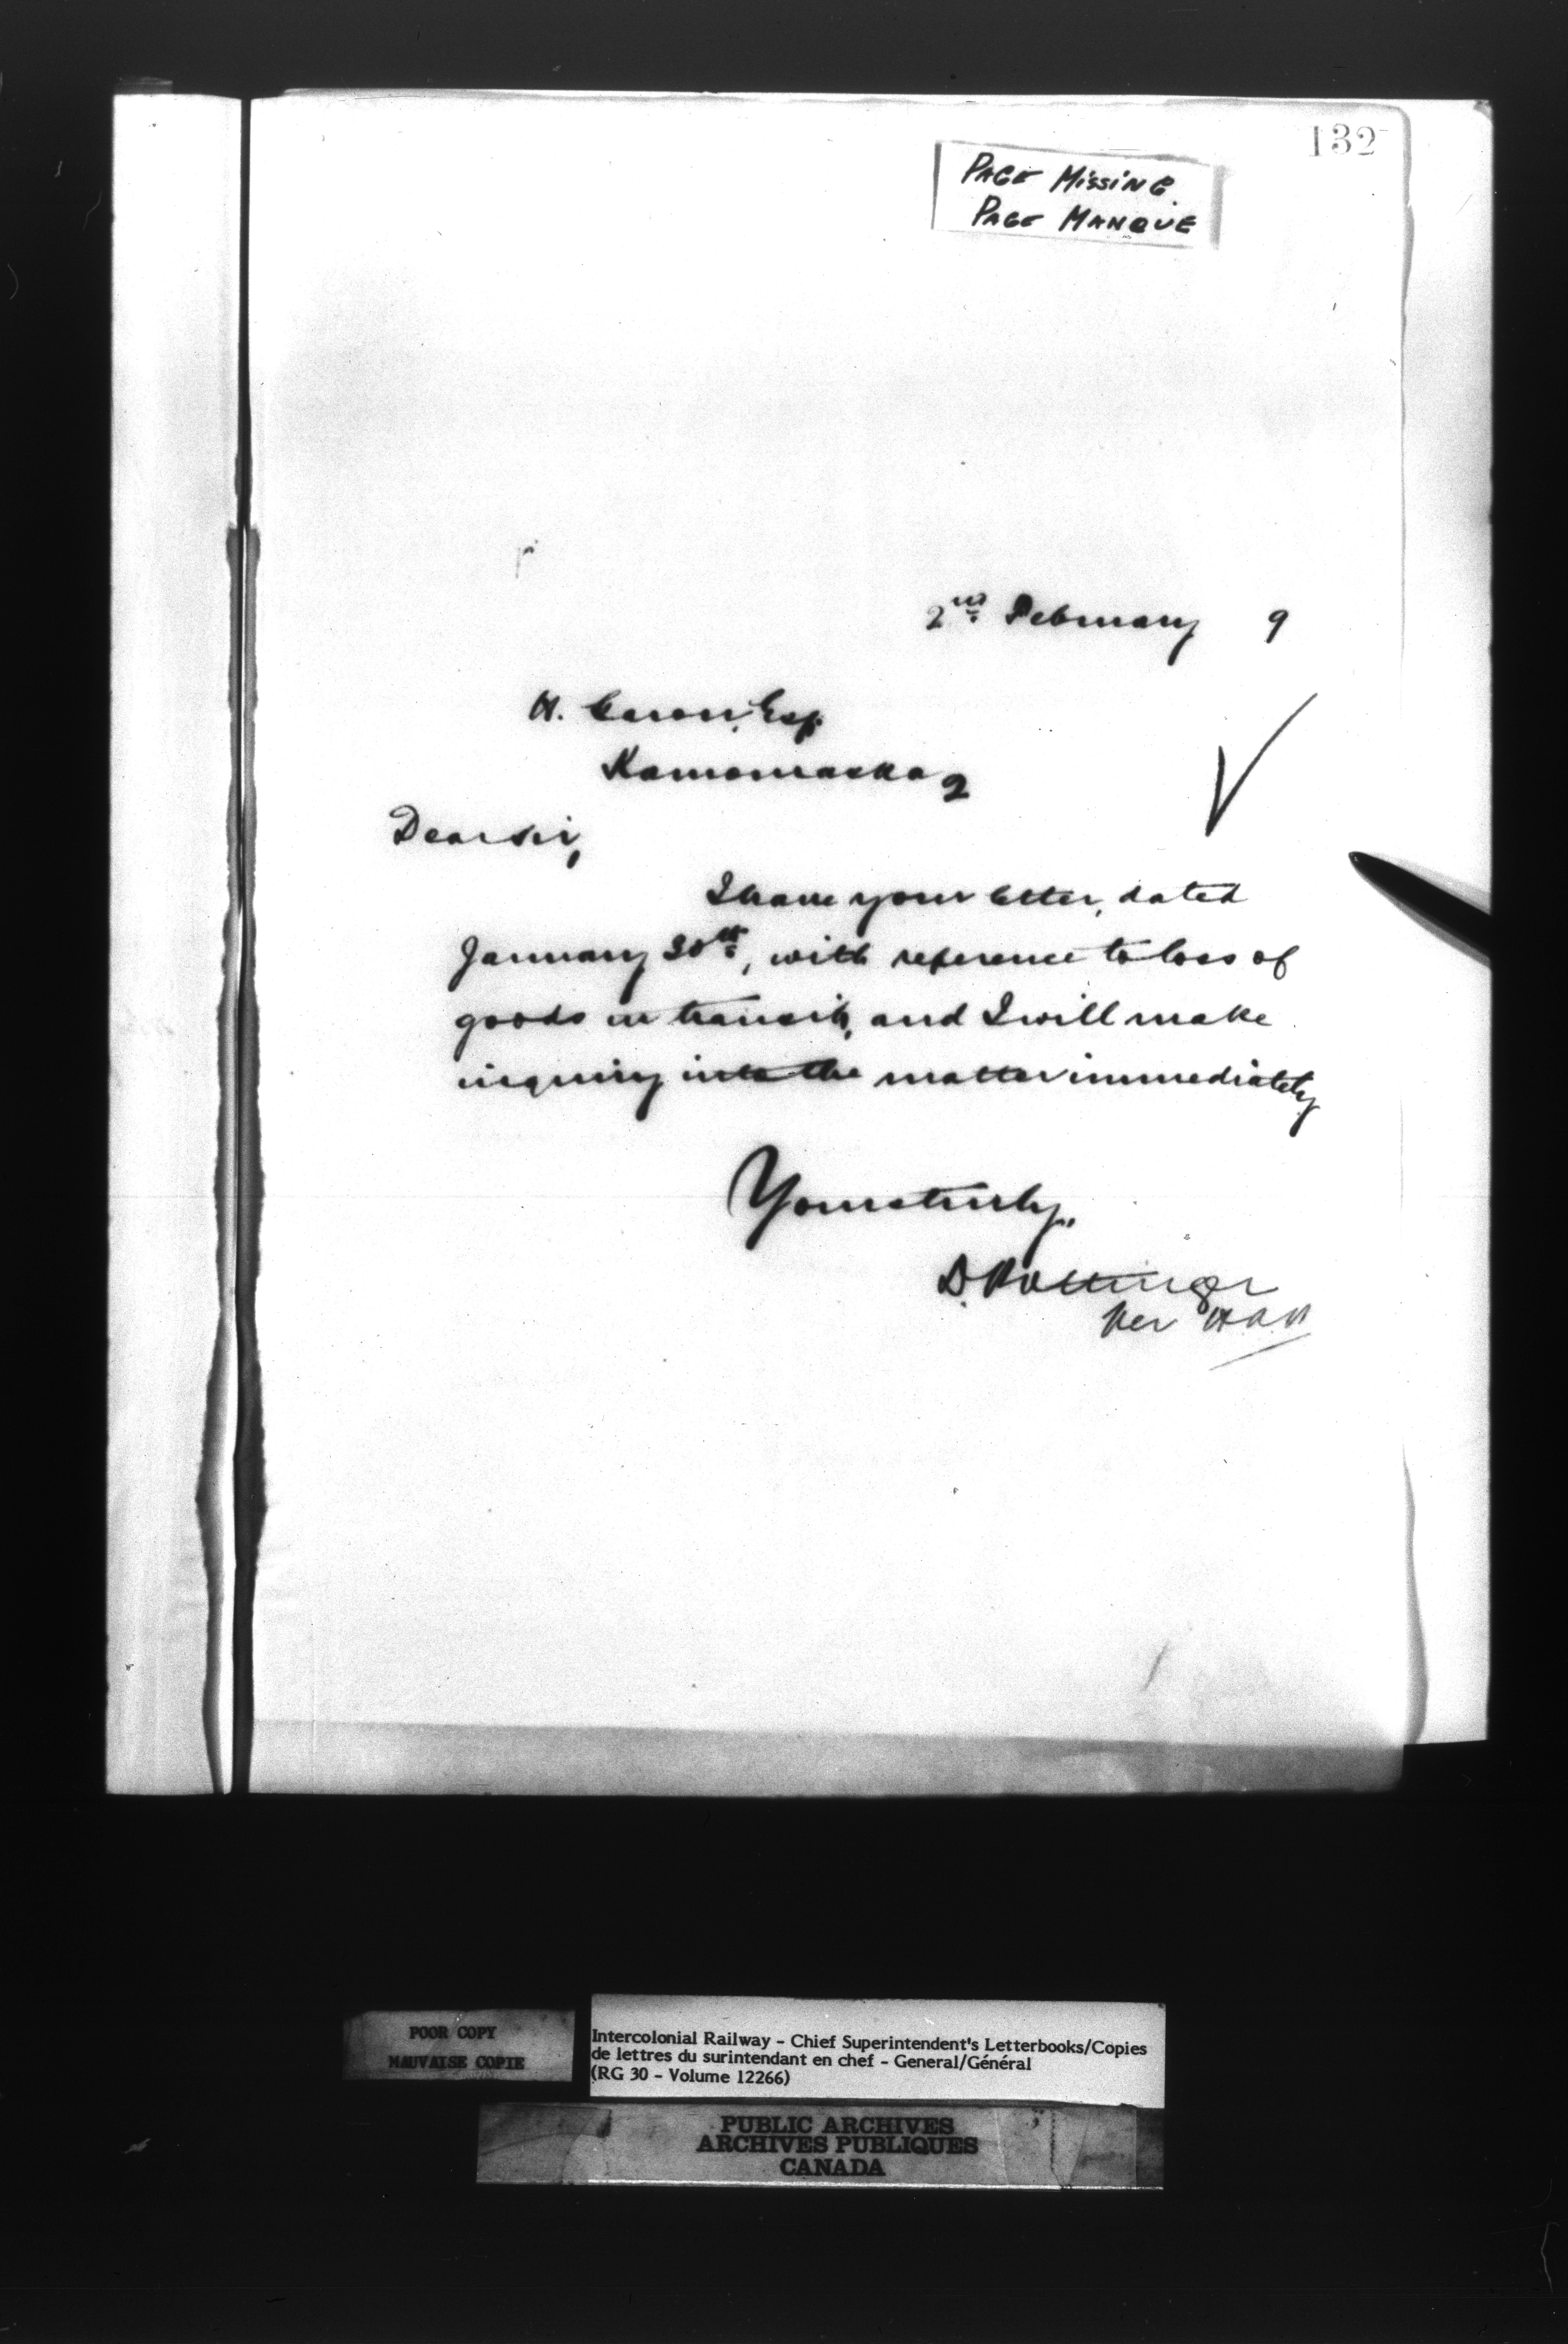 132
PAGE MISSING
PAGE MANQUE
2nd February 9
H. Caron, Esq.
Kamouraska Q
Dear Sir,
I have your letter, dated
January 30th, with reference to loss of
goods in transit, and I will make
inquiry into the matter immediately
Yours truly,
D. Pottinger
Per
POOR COPY
MAUVAISE COPIE
Intercolonial Railway - Chief Superintendent's Letterbooks/Copies
de lettres du surintendant en chef - General/Général
(RG 30 - Volume 12266)
PUBLIC ARCHIVES
ARCHIVES PUBLIQUES
CANADA